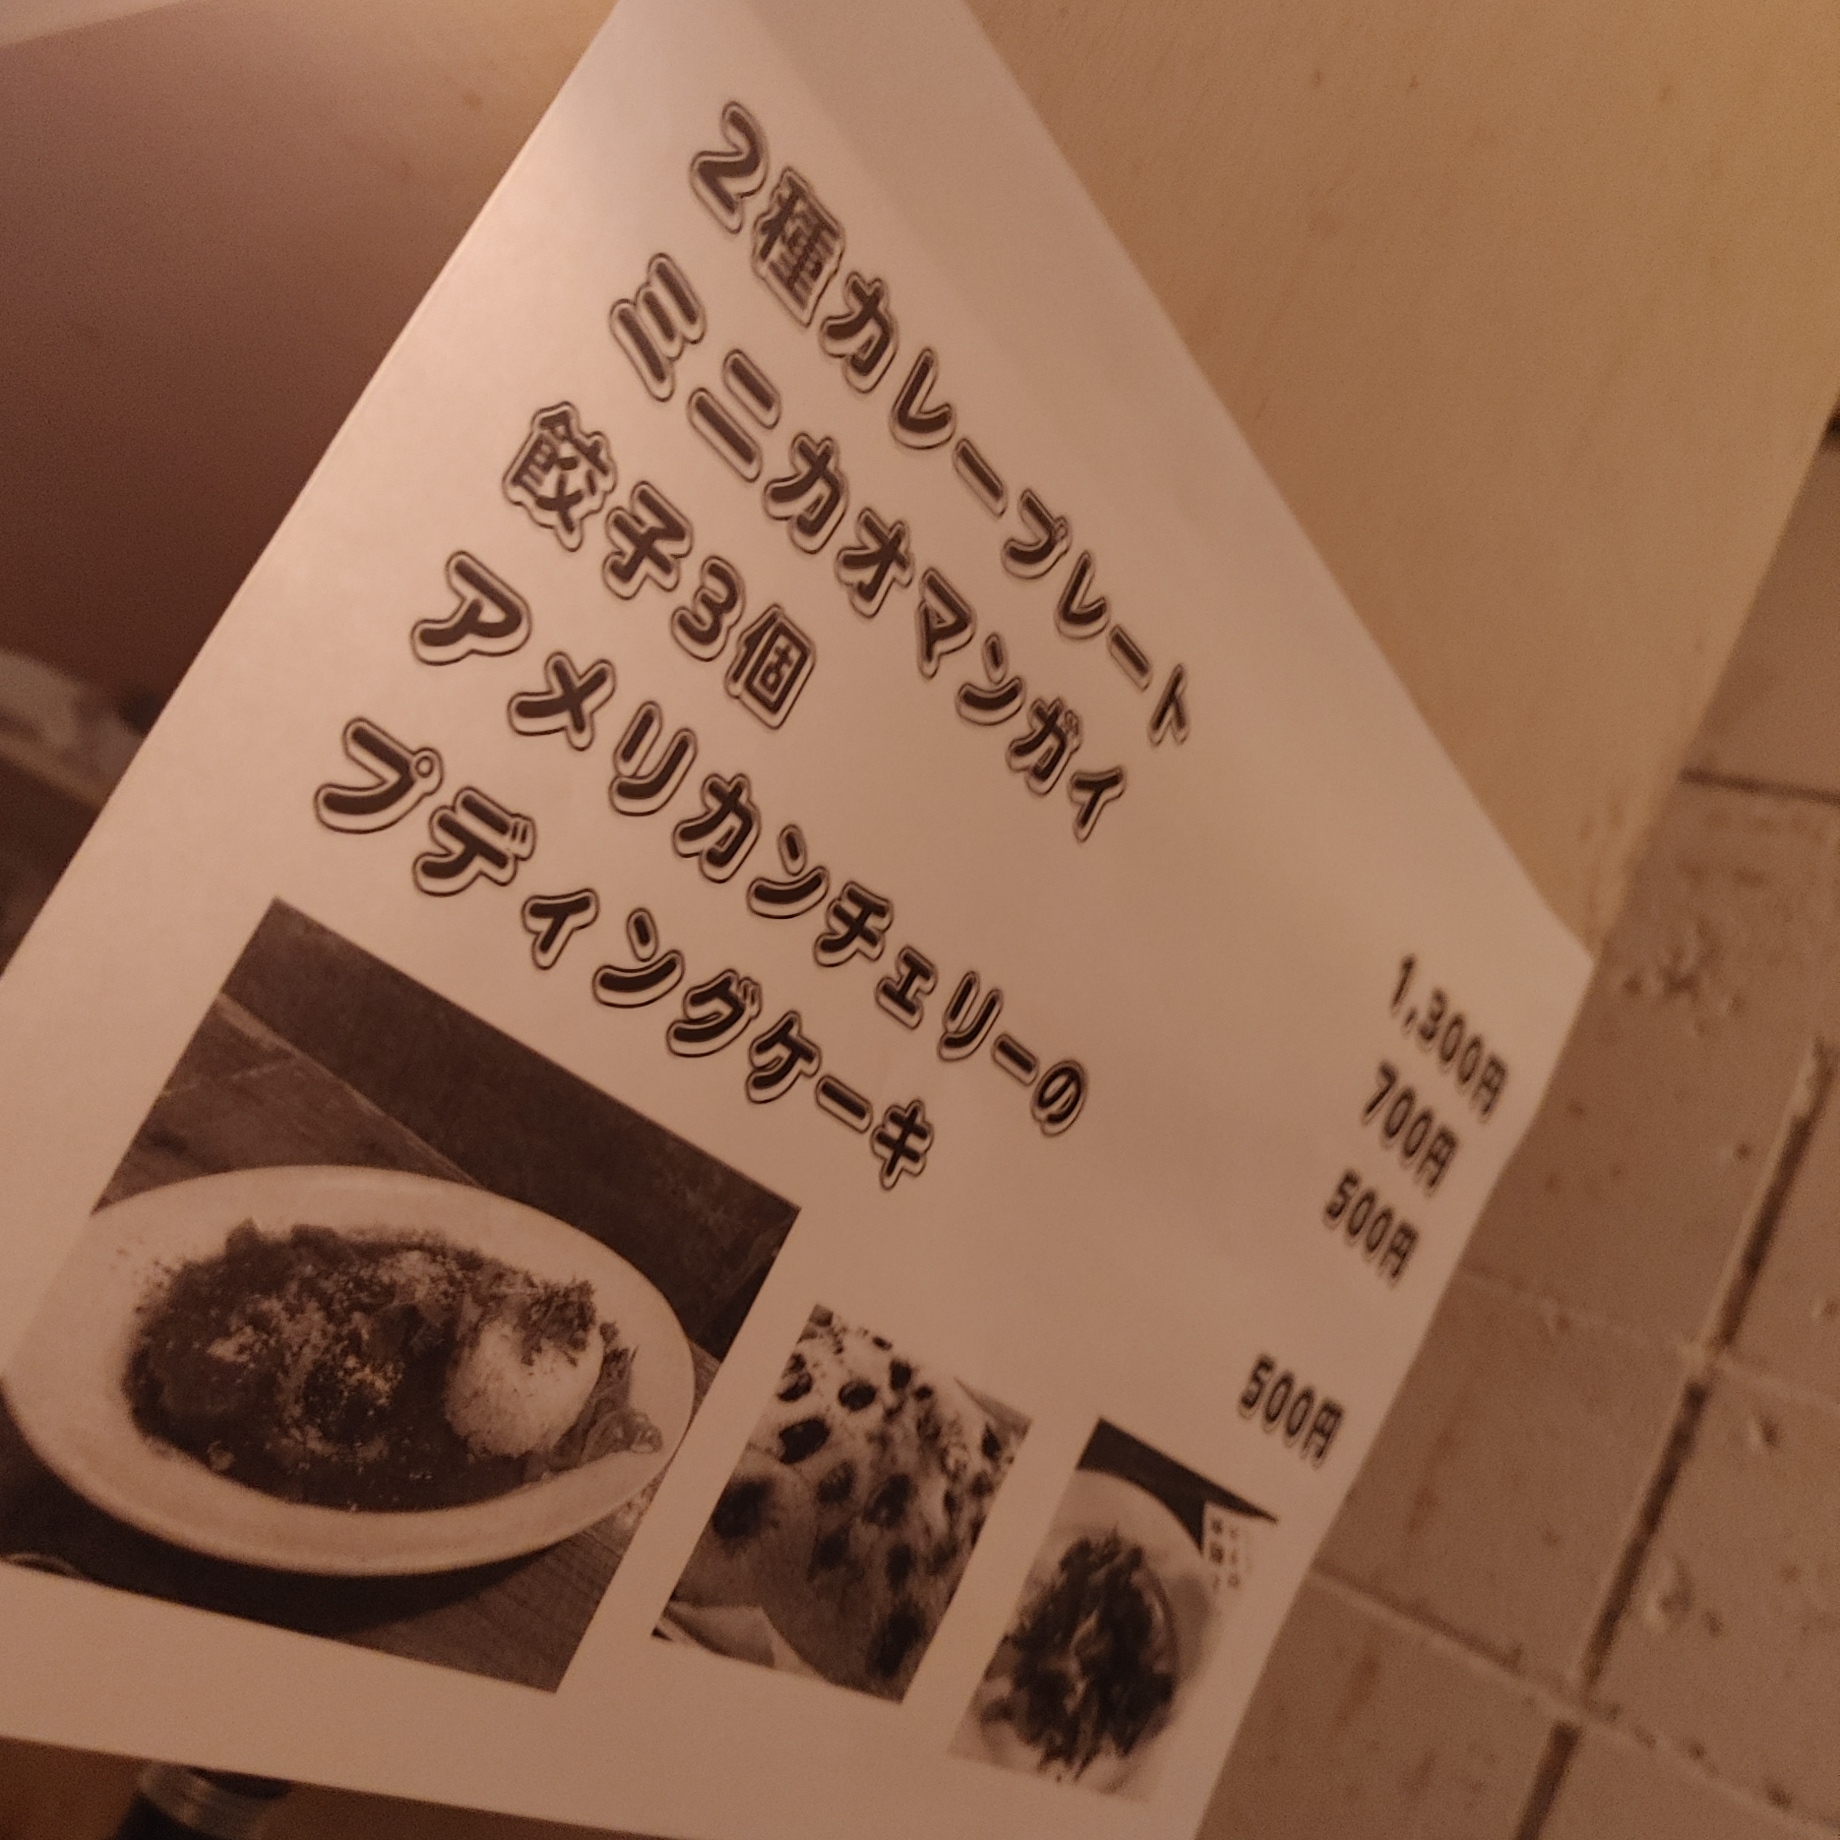 2種カレープレート 1,300円
ミニカオマンガイ 700円
餃子3個 500円
アメリカンチェリーの
プディングケーキ 500円